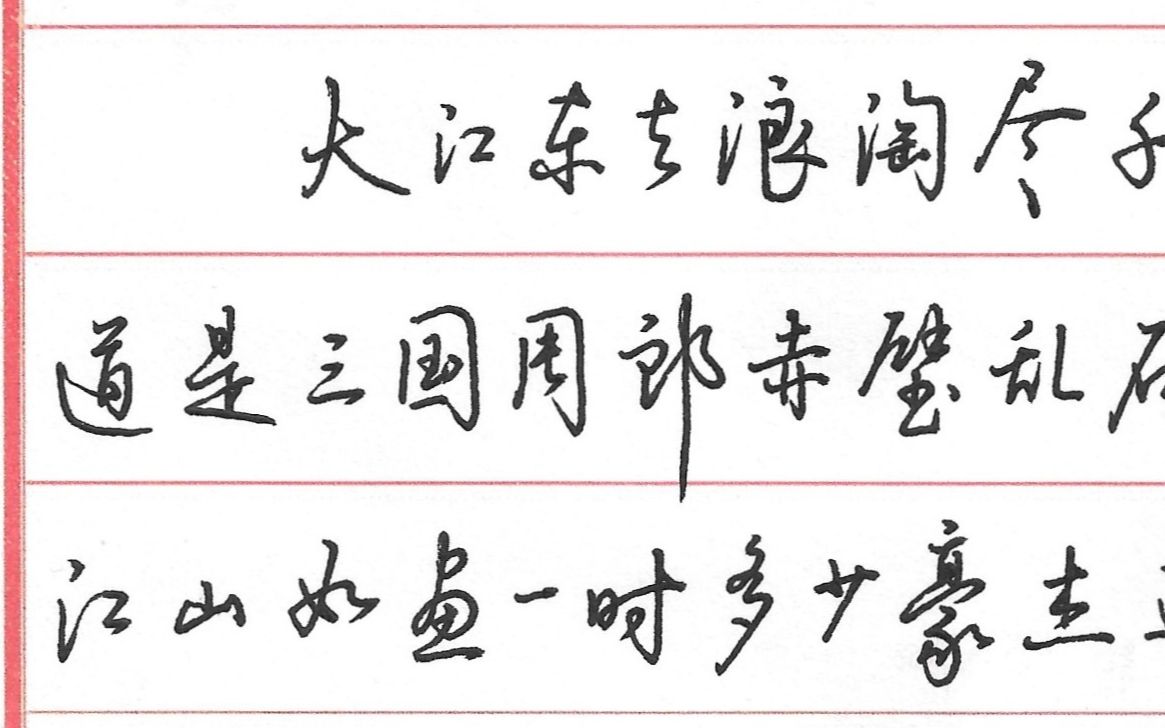 大江东去浪淘尽千
道是三国周郎赤壁乱石
江山如画一时多少豪杰